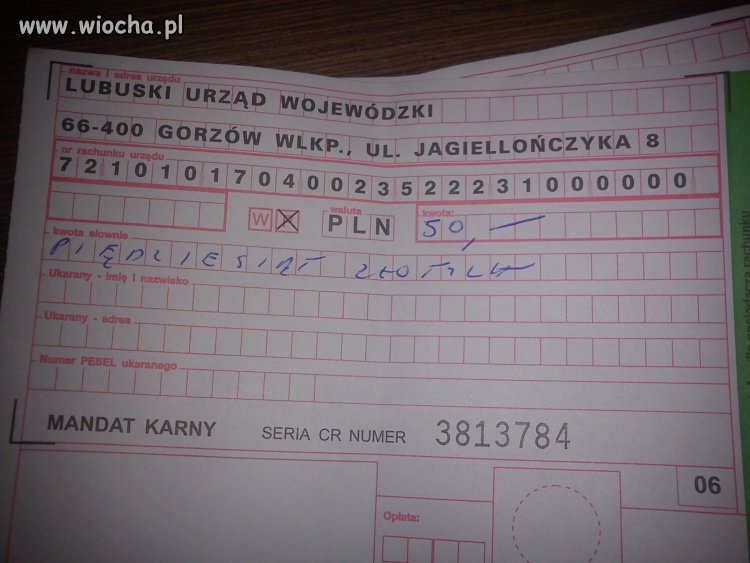 www.wiocha.pl
nazwa i adres urzędu
LUBUSKI URZĄD WOJEWÓDZKI
66-400 GORZÓW WLKP., UL. JAGIELLOŃCZYKA 8
nr rachunku urzędu
72101017040023522231000000
W X waluta PLN kwota: 50,-
kwota słownie
PIĘDZIESIĄT ZŁOTYCH
Ukarany - imię i nazwisko
Ukarany - adres
Numer PESEL ukaranego
MANDAT KARNY SERIA CR NUMER 3813784
06
Opłata: